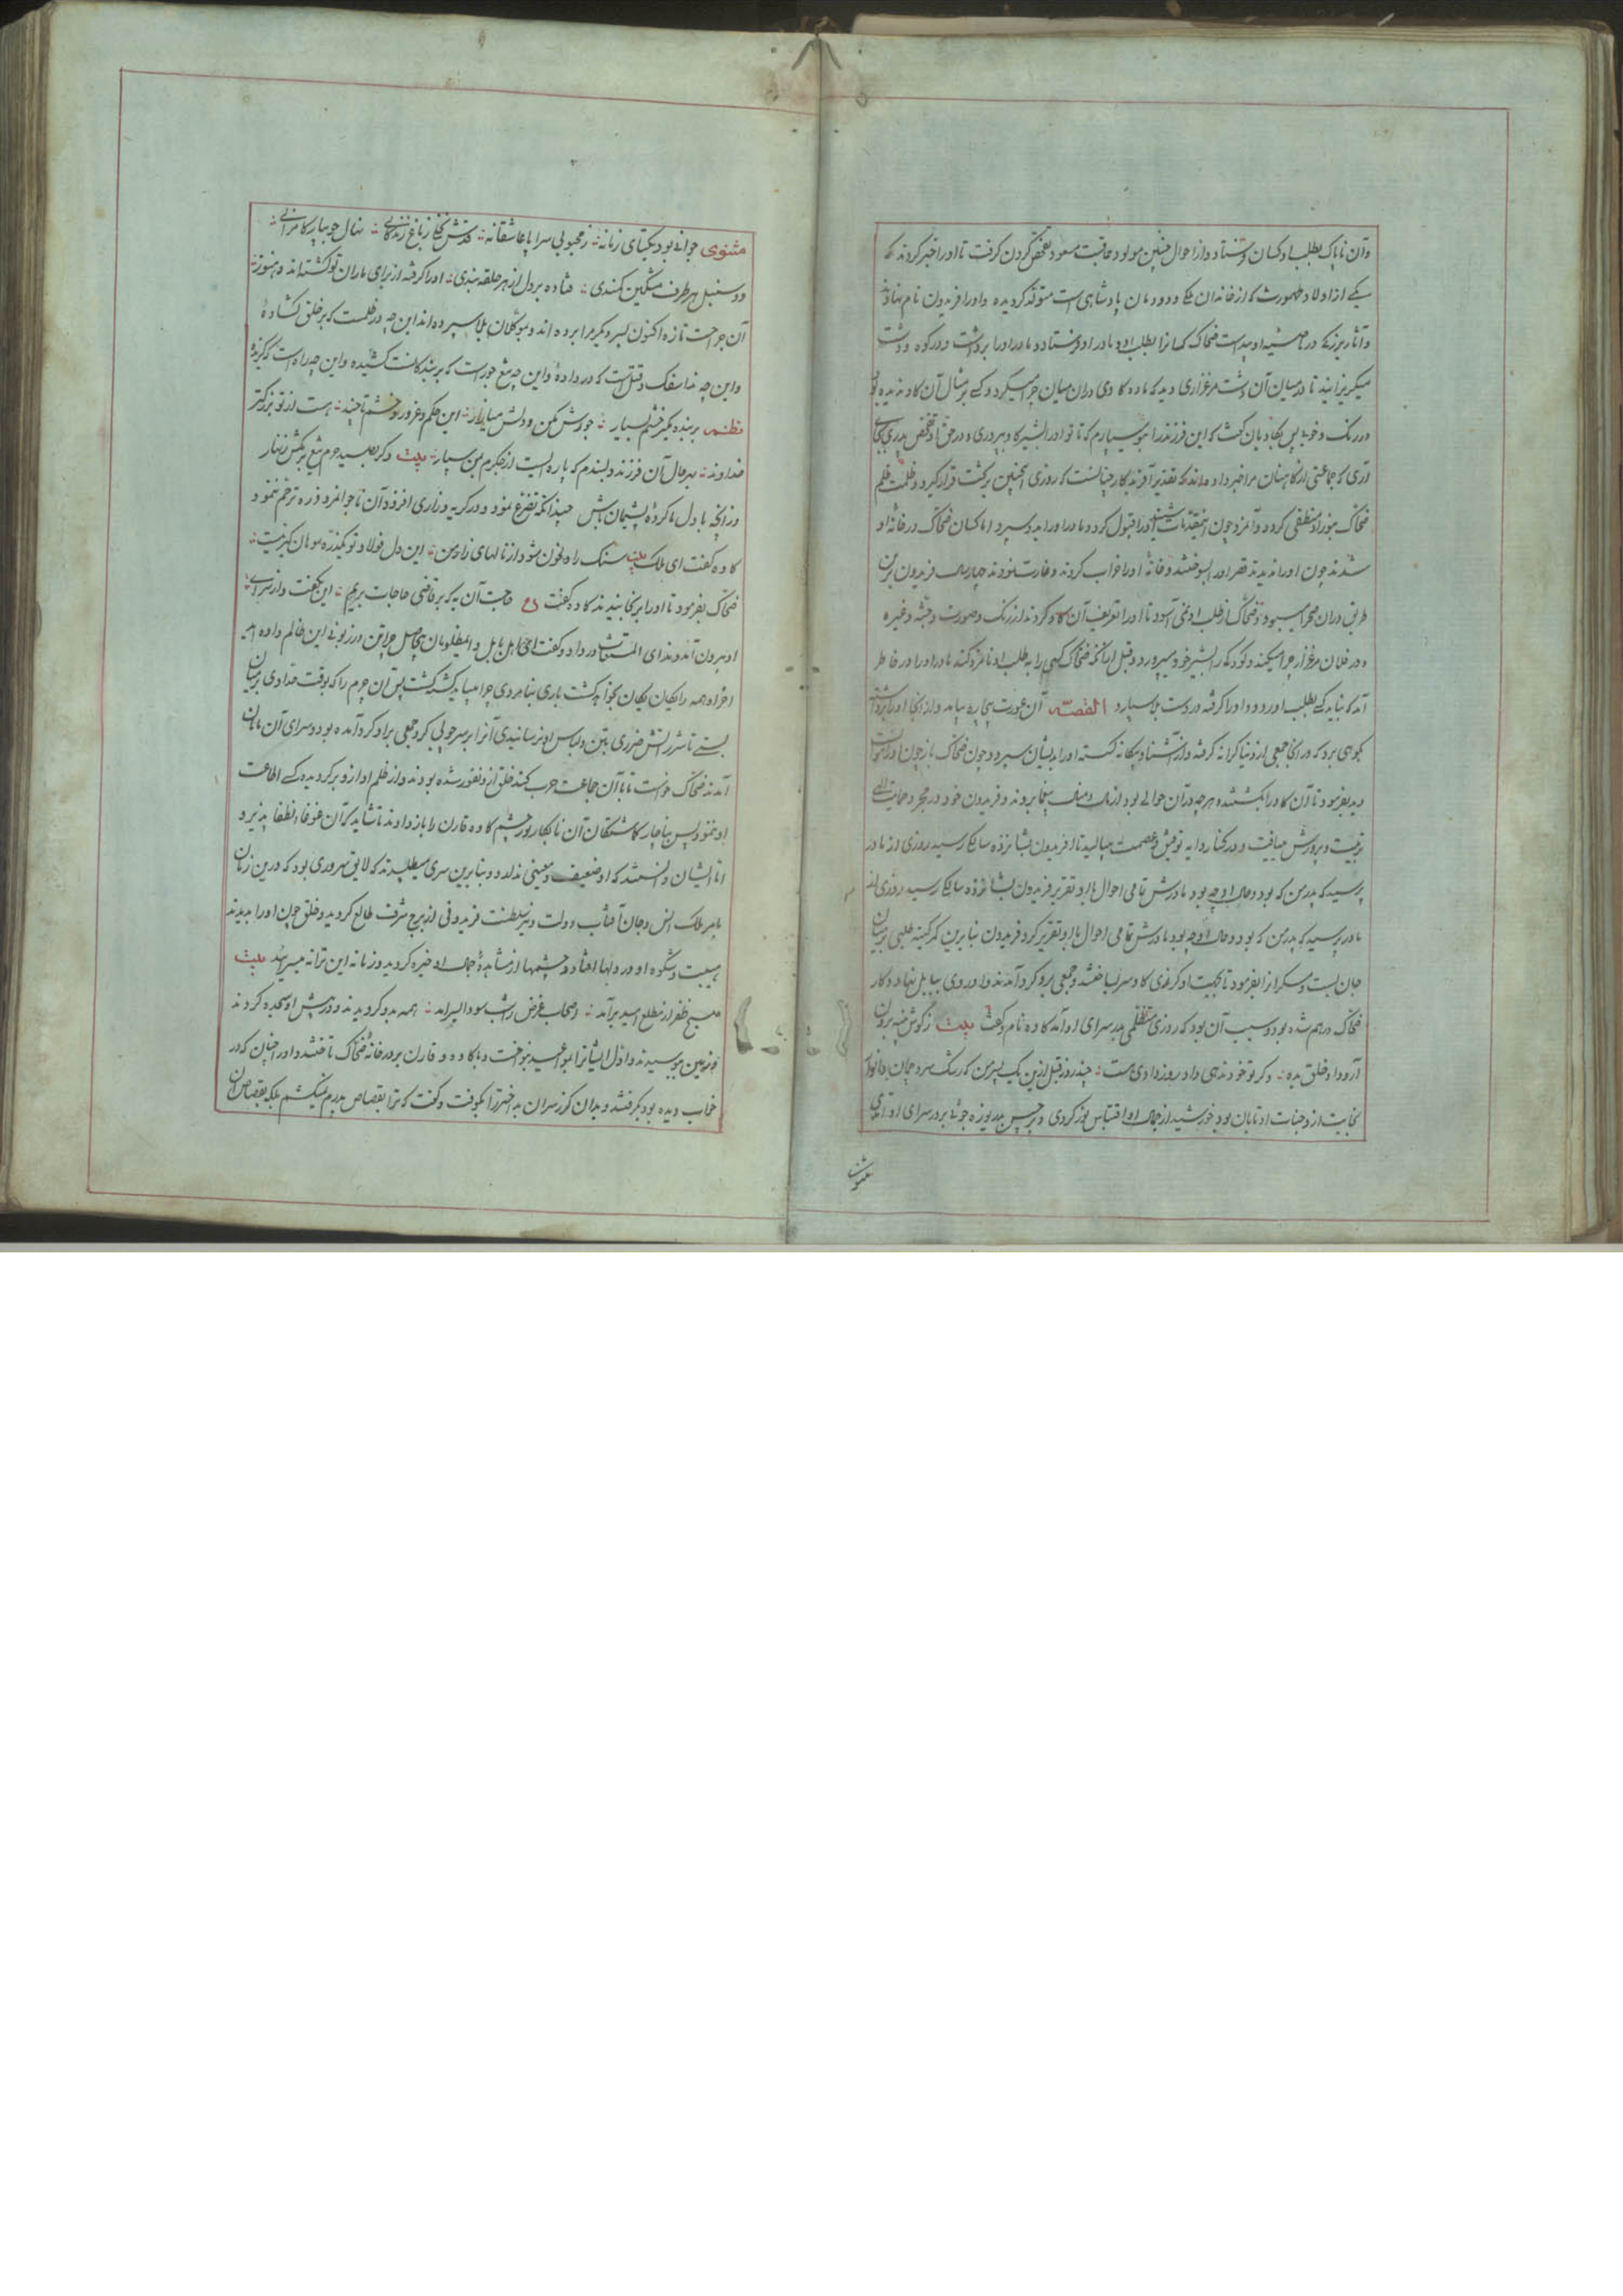 وآن ناپاک بطلب او کسان فرستاد و از احوال چنین مولود عاقبت مسعود تفحص کردن گرفت تا او را خبر کردند که
یکی از اولاد طهمورث که از خاندان ملک و دودمان پادشاهی است متولد گردیده و او را فریدون نام نهادند
و آثار بزرگی در ناصیه او پیداست ضحاک کسانرا بطلب او و مادر او فرستاد و مادر او را برداشت و در کوه و دشت
میگریزانید تا در میان آن دشت مرغزاری دید که ماده گاوی در آن میان چرا میکرد و کسی بر مثال آن گاو ندیده بود
در رنگ و خوبی پس بگاوبان گفت که این فرزند را بتو میسپارم که تا تو او را بشیر گاو بپروری و در حق او شخص پدری بجای
آری که جماعتی از کاهنان مرا خبر داده اند که تقدیر آفریدگار چنانست که روزی اینچنین برکشت قرار گیرد و ظلمت ظلم
ضحاک بنور او منطفی گردد و آنمرد چون اینمقدمات شنید او را قبول کرد و مادر او را بدو سپرد اما کسان ضحاک در خانه او
شدند چون او را ندیدند قصر او را بسوختند و خانه او را خراب کردند و غارت نمودند چهار سال فریدون برین
طریق در آن صحرا میبود و ضحاک از طلب او نمی آسود تا او را تعریف آن گاو کردند از رنگ و صورت و جثه و غیره
و در فلان مرغزار چرا میکند و کودکی را بشیر خود میپرورد و قبل از آنکه ضحاک کسی را به طلب او نامزد کند مادر او را در خاطر
آمد که نباید کسی بطلب او رود و او را گرفته در دست بلا سپارد القصه آن عورت بیچاره بیامد و از آنجا او را برداشته
بکوهی برد که در آنجا جمعی از دنیا کرانه گرفته و از آشنا و بیگانه گسسته او را بدیشان سپرد و چون ضحاک باز چون او را نیافت
بفرمود تا آن گاو را بکشتند و هر چه در آن حوالی بود از مال و منال بیغما بردند و فریدون خود در حجر و حمایت الهی
تربیت و پرورش مییافت و در کنار دایه توفیق و عصمت میبالید تا فریدون بشانزده سالگی رسید روزی از مادر
پرسید که پدر من که بود و حال او چه بود مادرش تمامی احوال با او تقریر فریدون بشانزده سالگی رسید روزی از
مادر پرسید که پدر من که بود و حال او چه بود مادرش تمامی احوال با او تقریر کرد فریدون بنابرین کمر کینه طلبی بر میان
جان بست و عسکر را بفرمود تا بجهت او گرزی گاو سر ساختند و جمعی برو گرد آمدند و او روی ببابل نهاد و کار
ضحاک درهم شده بود و سبب آن بود که روزی متظلمی بدر سرای او آمد کاوه نام و گفت بیت ز گوش پنبه برون
آر و داد خلق بده و گر تو خود ندهی داد روز دادی هست چند روز قبل ازین یک پسر من که رشک سرو چمان بود انوار
نجابت از وجنات او تابان بود خورشید از جمال او اقتباس نور کردی و برجیس بدریوزه جوئی بر در سرای او آمدی
مثنوی
مثنوی جوانی بود یکتای زمانه ز محبوبی سراپا عاشقانه قدش نخلی ز باغ زندگانی نهال جویبار کامرانی
دو سنبل هر طرف مشکین کمندی فتاده بر دل از هر حلقه بندی او را گرفته از برای ماران تو کشته اند و هنوز
آن جراحت تازه اکنون پسر دیگر مرا برده اند و بموکلان بلا سپرده اند این چه در ظلمست که بر خلق گشادۀ
و این چه ندا سفک و قتل است که در دادۀ و این چه تیغ جور است که بر بندگانت کشیده و این چه راه است که گزیدۀ
نظم بر بنده مگیر خشم بسیار جورش مکن و دلش میازار این حکم و غرور و خشم تا چند هست از تو بزرگتر
خداوند بهر حال آن فرزند دلبندم که پاره ایست از جگرم بمن سپار بیت و گر بصید حرم تیغ برکشی زنهار
وز آنچه با دل ما کردۀ پشیمان باش چندانکه تضرع نمود و در گریه و زاری افزود آن ناجوانمرد ذره ترحم ننمود
کاوه گفت ای ملک بیت سنگ را دل خون شود از نالهای زار من این دل فولاد تو یکذره سوهان گیر نیست
ضحاک بفرمود تا او را برنجانیدند کاوه گفت ع حاجت آن به که بر قاضی حاجات بریم این بگفت و از سرای
او بیرون آمد و ندای المستغاث در داد و گفت ای اهل بابل و ای مظلومان بیحاصل چرا تن در زبونی این ظالم داده اید
آخر او همه را یکان یکان بخواهد کشت باری بنامردی چرا میباید کشته گشت پس آن چرم را که بوقت حدادی بر میان
بستی تا شرر آتش ضرری بتن و لباس او نرسانیدی آنرا بر سر چوبی کرد جمعی برو گرد آمده بود و سرای آن ماران
آمدند ضحاک خواست تا با آن جماعت حرب کند خلق ازو نفور شده بودند و از ظلم او ازو برگردیده کسی اطاعت
او ننمود پس بناچار گماشتگان آن نابکار پور چشم کاوه قارن را باز دادند تا شاید که آن غوغا انطفا پذیرد
اما ایشان دانستند که او ضعیف و معینی ندارد و بنابرین سری میطلبیدند که لایق سروری بود که درین زمان
بامر ملک انس و جان آفتاب دولت و نیر سلطنت فریدونی از برج شرف طالع گردید و خلق چون او را بدیدند
هیبت و شکوه او در دلها افتاد و چشمها از مشاهدۀ جمال او خیره گردید و زمانه این ترانه میسرائید بیت
صبح ظفر از مطلع امید برآمد اصحاب غرض را شب سودا بسر آمد همه بدو گرویدند و در پیش او سجده کردند
و زمین ببوسیدند و اول ایشانرا بمواعید بنواخت و با کاوه و قارن بر در خانۀ ضحاک تاختند و او را چنان که در
خواب دیده بود بگرفتند و بدان گرز سران به اختر را بکوفت و گفت که ترا بقصاص پدرم نمیکشم بلکه بقصاص آن